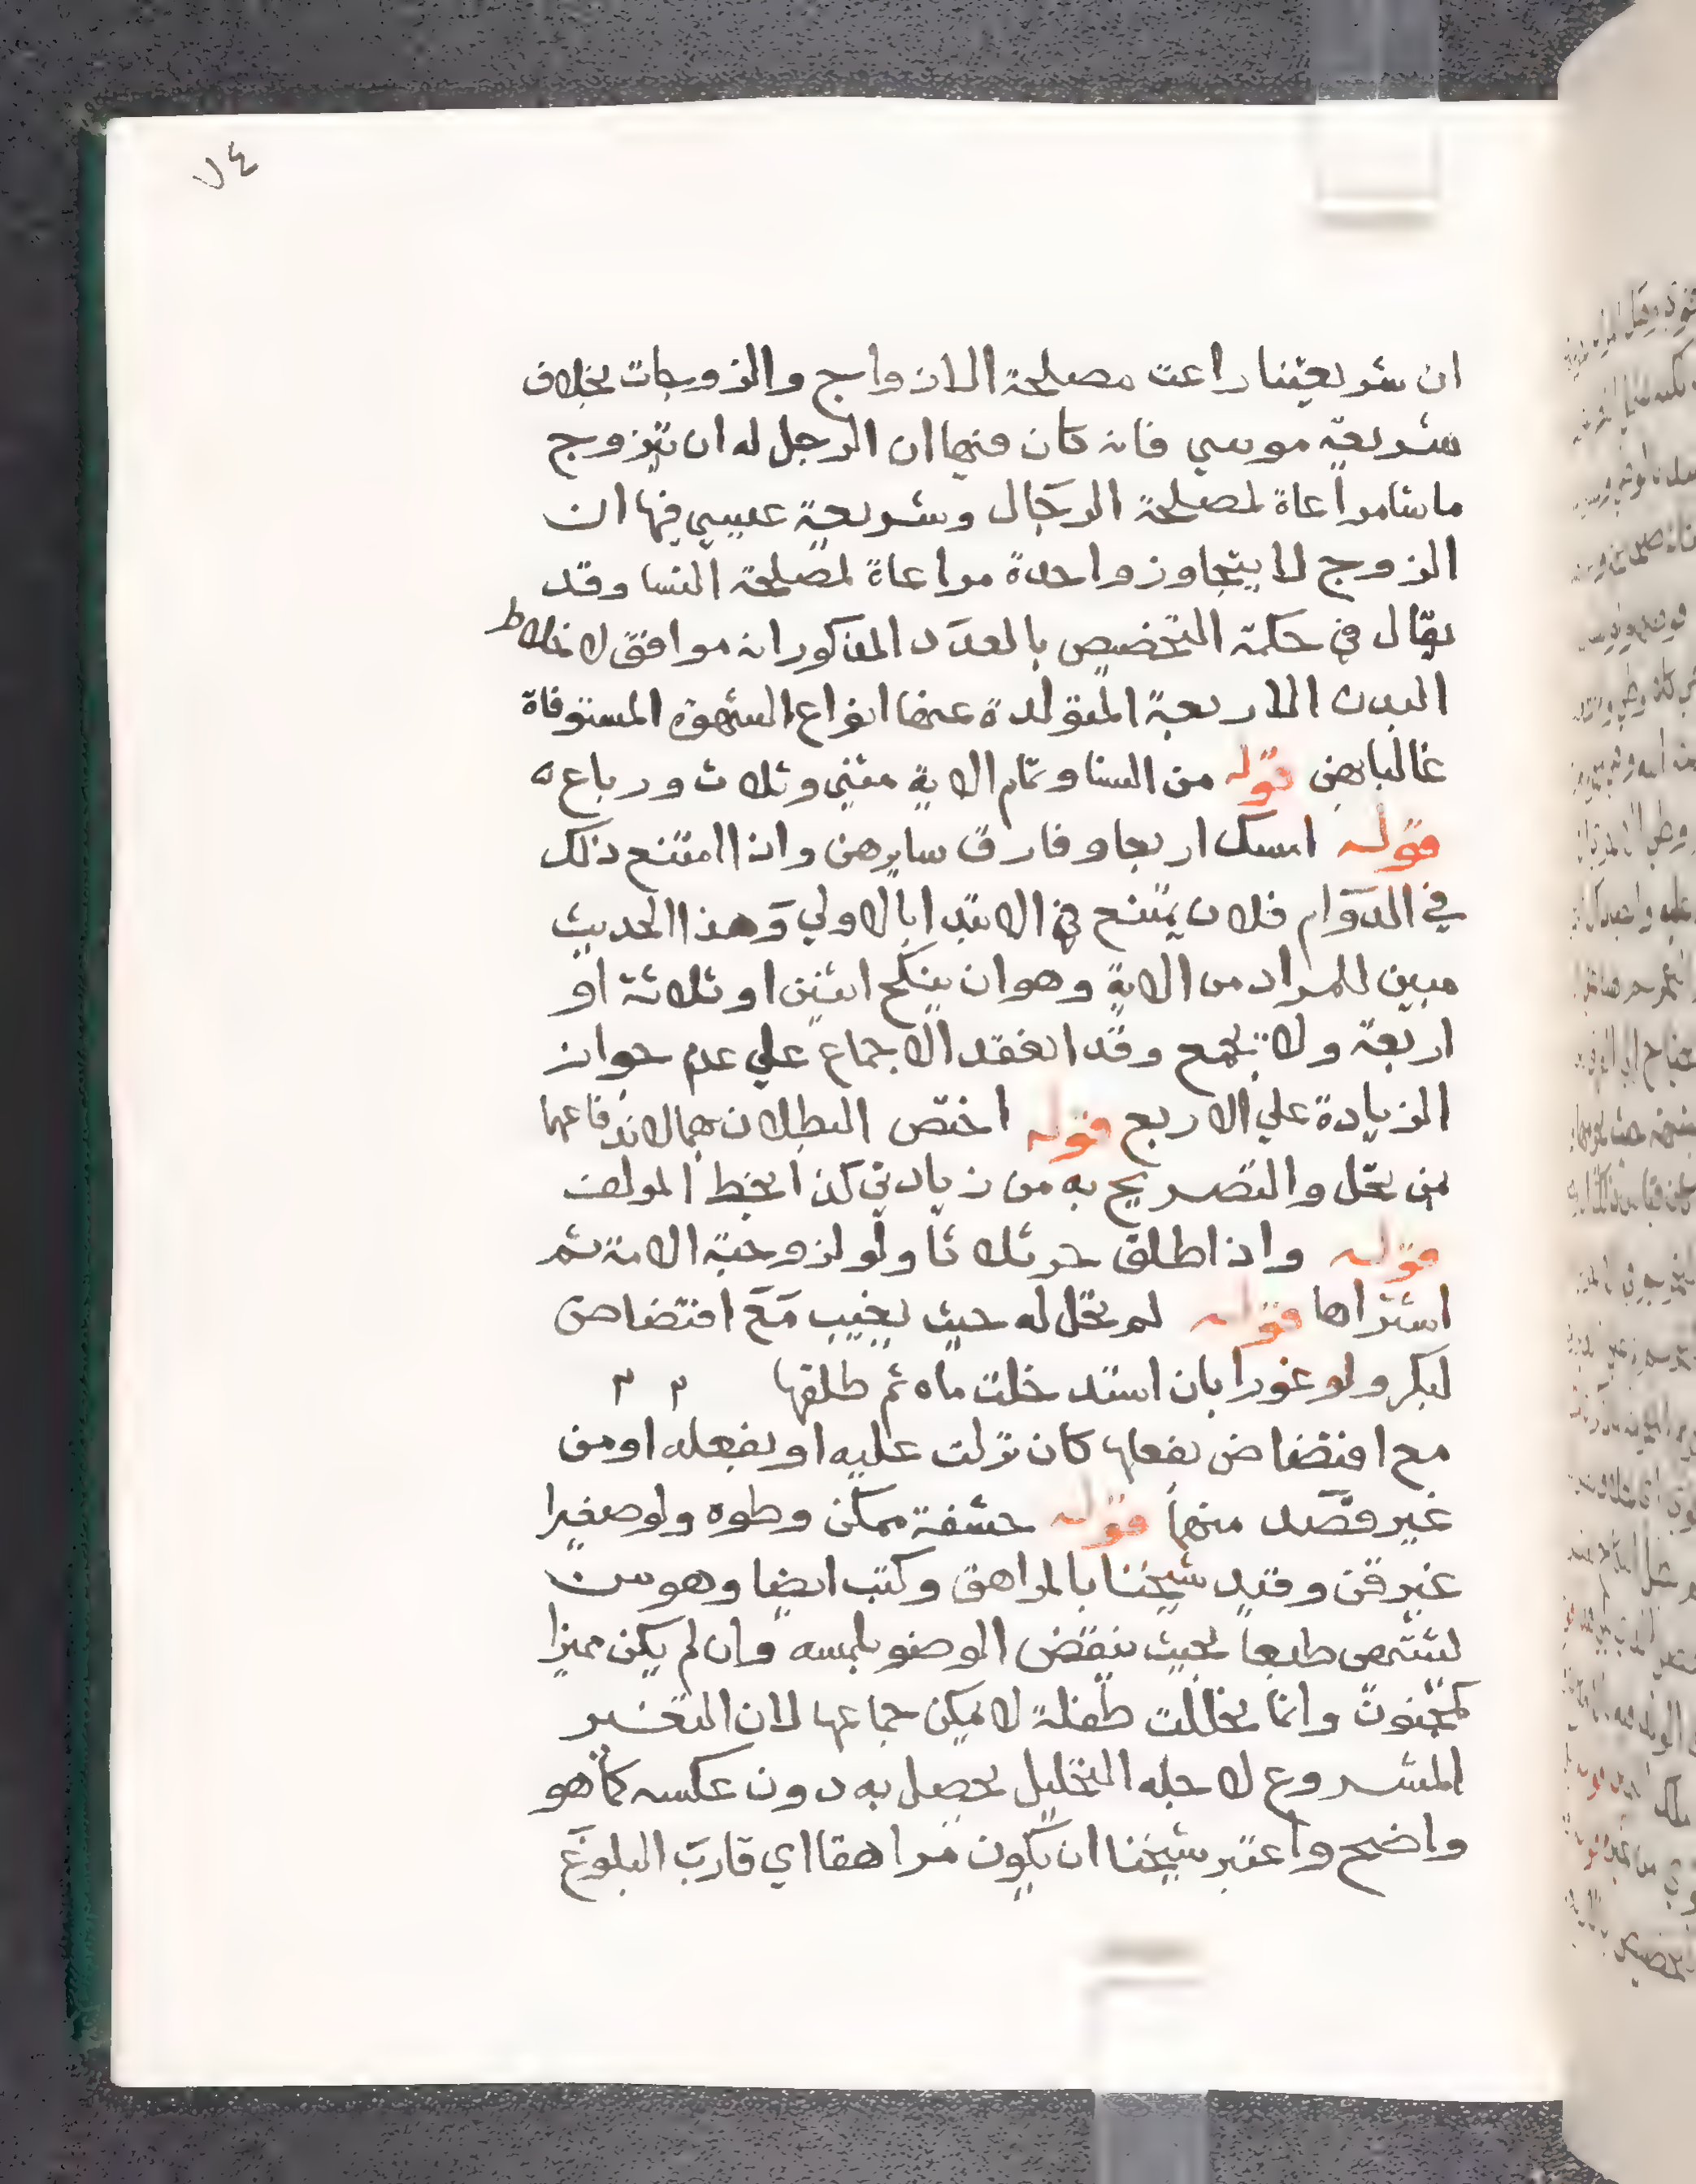 ٧٤
ان شريعتنا راعت مصلحة الازواج والزوجات بخلاف
شريعة موسي فانه كان فيها ان الرجل له ان يتزوج
ماشا مراعاة لمصلحة الرجال وشريعة عيسي فيها ان
الزوج لا يتجاوز واحدة مراعاة لمصلحة النسا وقد
يقال في حكمة التخصيص بالعدد المذكور انه موافق لاخلاط
البدن الاربعة المتولدة عنها انواع الشهوة المستوفاة
غالبا بهن قوله من النسا وتمام الاية مثني وثلاث ورباع ه
قوله امسك اربعا وفارق سايرهن واذا امتنع ذلك
في الدوام فلان يمتنع في الابتدا بالاولي وهذا الحديث
مبين للمراد من الاية وهو ان ينكح اثنين او ثلاثة او
اربعة ولا يجمع وقد انعقد الاجماع علي عدم جواز
الزيادة علي الاربع قوله اختص البطلان بهما لاندفاعهما
بمن يحل والتصريح به من زيادتي كذا بخط المولف
قوله واذا طلق حر ثلاثا ولو لزوجته الامة ثم
اشتراها قوله لم تحل له حيث يغيب مع افتضاض
لبكر ولو غورا بان استدخلت ماه ثم طلقها ٢ ٢
مع افتضاض بفعلها كان نزلت عليه او بفعله او من
غير قصد منهما قوله حشفة ممكن وطوه ولو صغيرا
غير قن وقيد شيخنا بالمراهق وكتب ايضا وهو من
يشتهي طبعا بحيث ينقض الوضو بلمسه وان لم يكن مميزا
كمجنون وانما تحللت طفلة لا يمكن جماعها لان التنفير
المشروع لاجله التحليل يحصل به دون عكسه كما هو
واضح واعتبر شيخنا ان يكون مراهقا اي قارب البلوغ